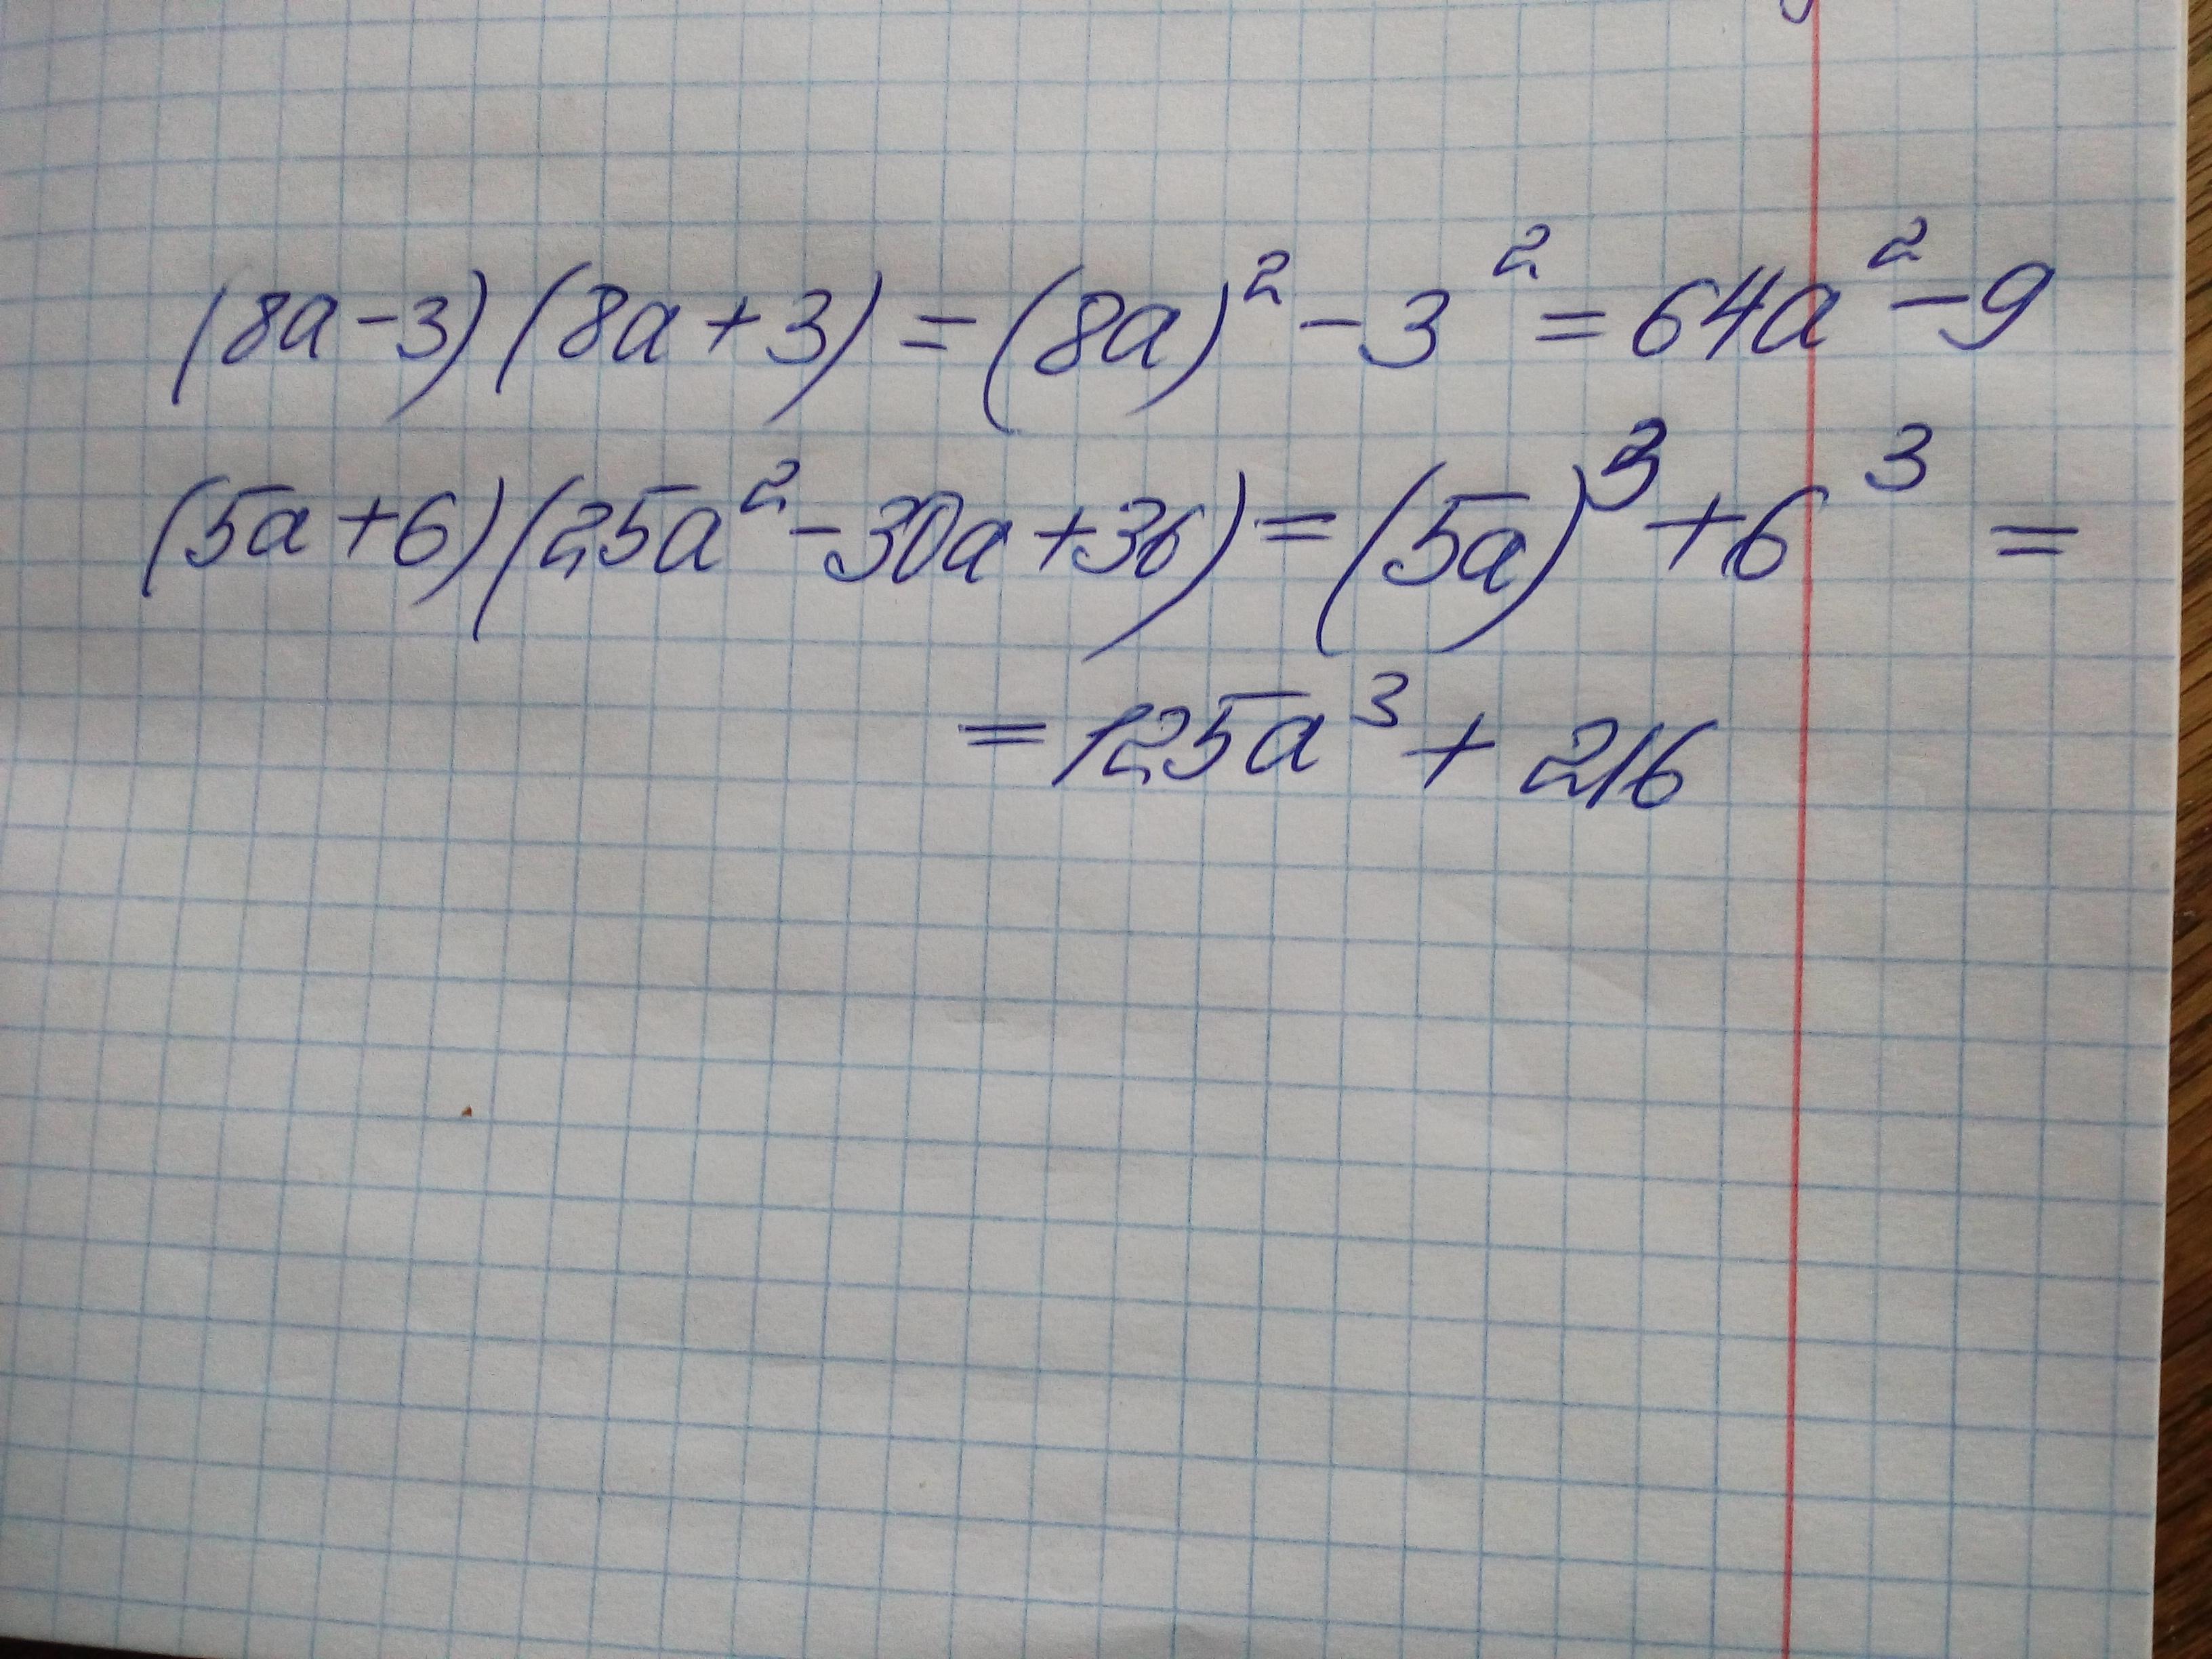 (8a-3)(8a+3)=(8a)²-3²=64a²-9
(5a+6)(25a²-30a+36)=(5a)³+6³=
=125a³+216